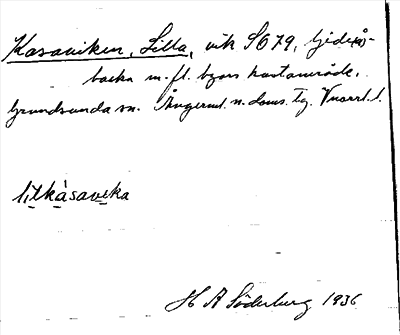 Kasaviken, Lilla, vik S679, Gideå-
backa m. fl. byars kustområde.
Grundsunda sn. Ångerml. n. doms. tg. Vnorrl. l.
litkàsaveka
H A Söderberg 1936